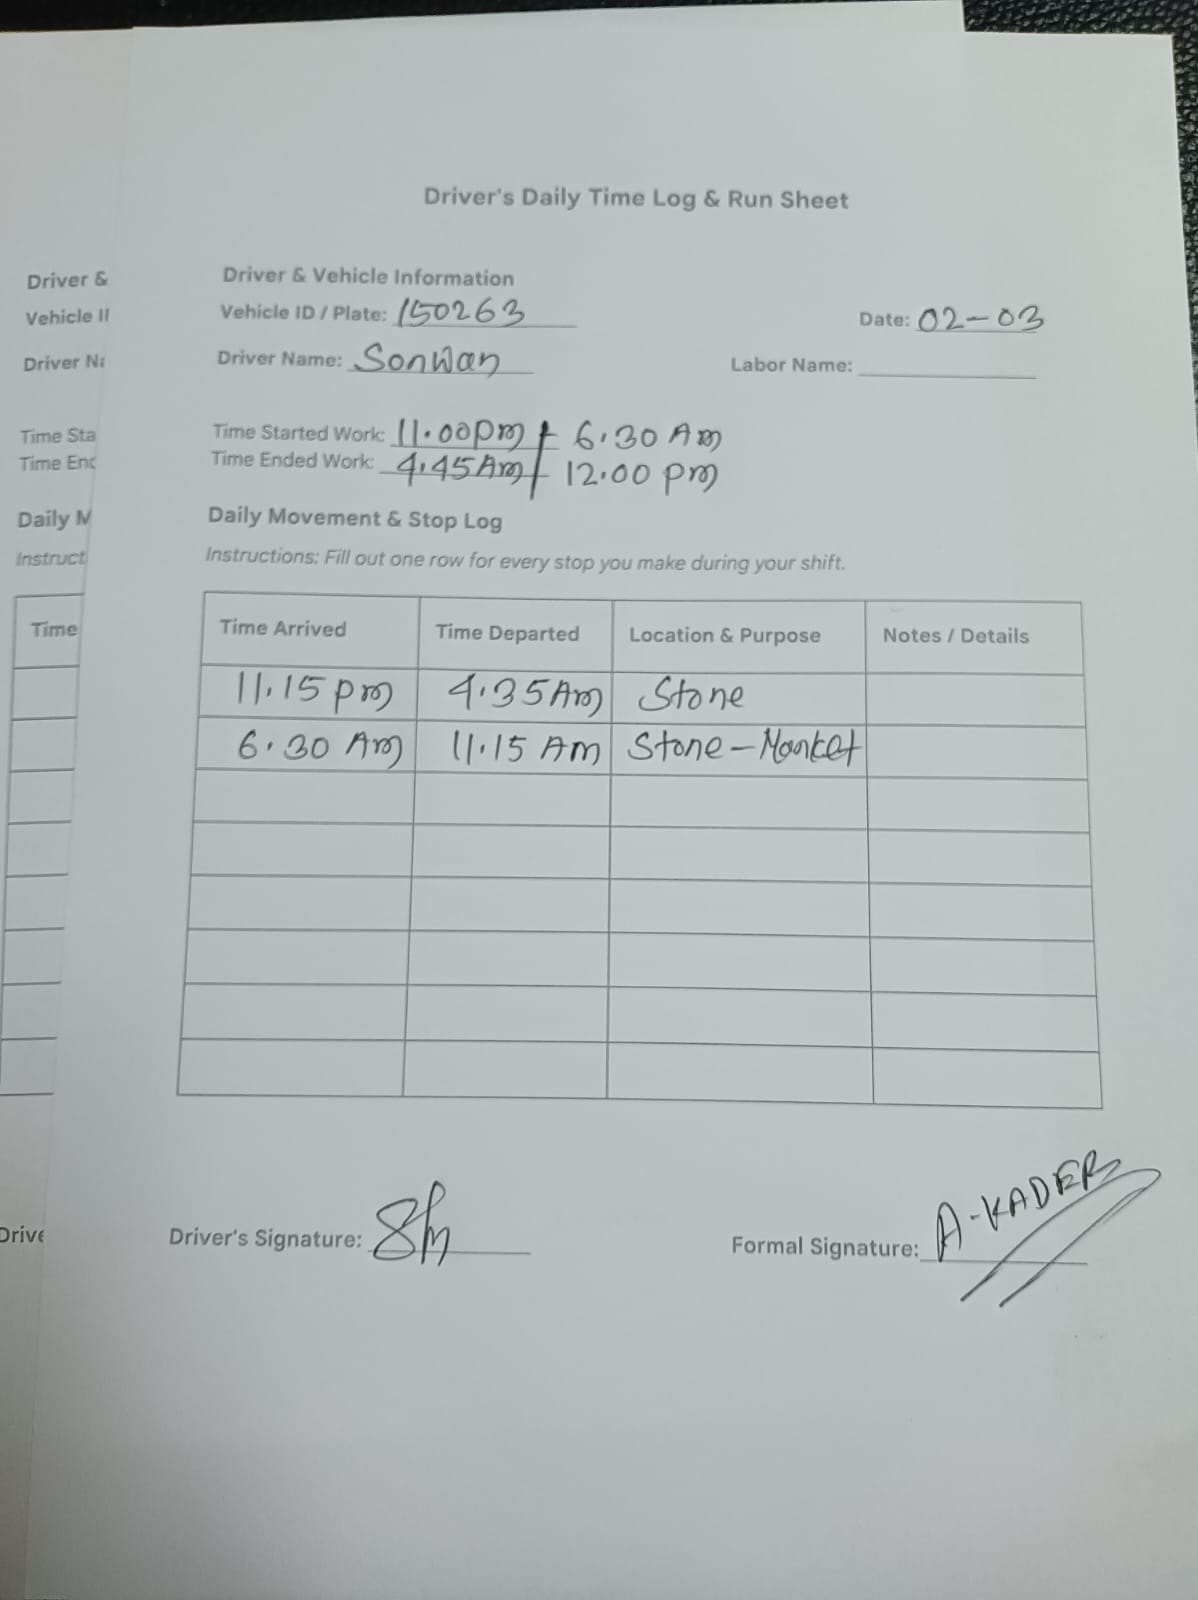 Driver's Daily Time Log & Run Sheet
Driver &
Vehicle
Driver
Time Sta
Time End
Daily M
Instruct
Time
Drive
Driver & Vehicle Information
Vehicle ID / Plate: 150263 Date: 02-03
Driver Name: Sonwan Labor Name:
Time Started Work: 11.00pm / 6.30 Am
Time Ended Work: 4.45Am / 12.00 pm
Daily Movement & Stop Log
Instructions: Fill out one row for every stop you make during your shift.
Time Arrived Time Departed Location & Purpose Notes / Details
11.15 pm 4.35Am Stone
6.30 Am 11.15 Am Stone-Market
Driver's Signature: Formal Signature: A-KADER